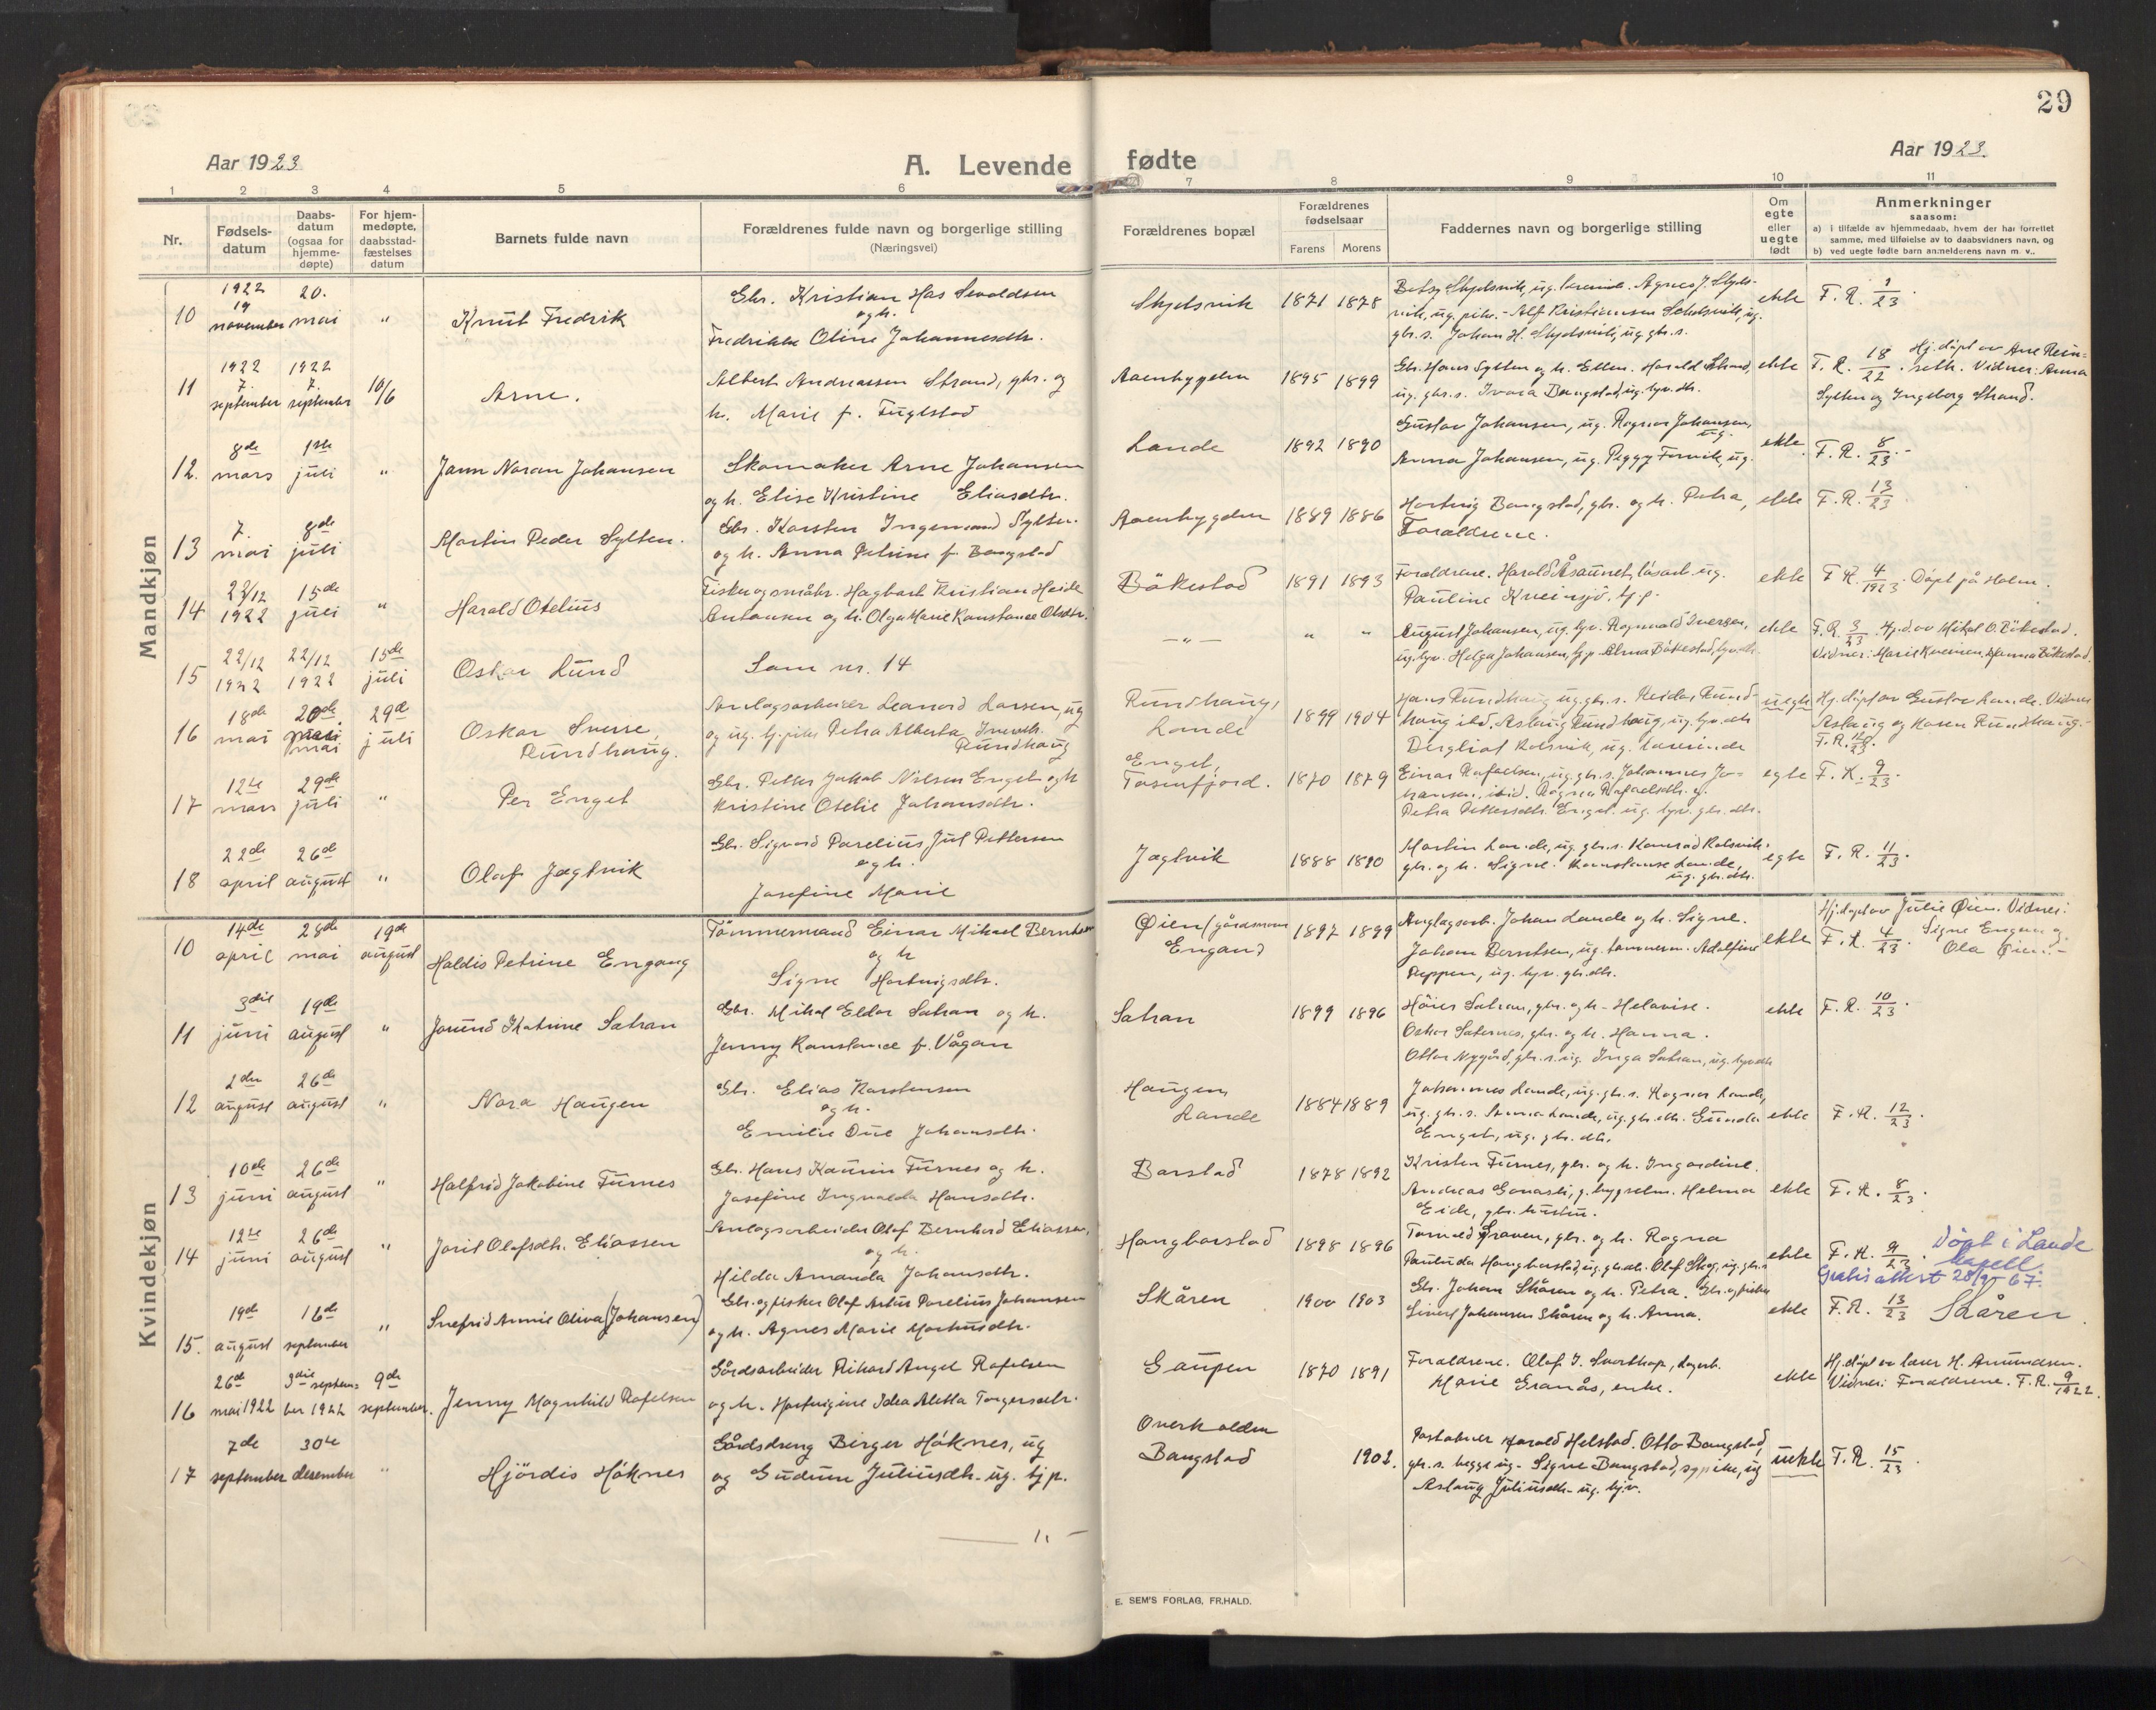 29
Aar 1923
A. Levende fødte
Aar 1923.
1 2 3 4 5 6 7 8 9 10 11
Nr.
Fødsels-
datum
Daabs-
datum
(ogsaa for
hjemme-
døpte)
For hjem-
medøpte,
daabsstad-
fæstelses
datum
Barnets fulde navn
Forældrenes fulde navn og borgerlige stilling
(Næringsvei)
Forældrenes bopæl
Forældrenes
fødselsaar
Farens Morens
Faddernes navn og borgerlige stilling
Om
egte
eller
uegte
født
Anmerkninger
saasom:
a) i tilfælde av hjemmedaab, hvem der har forrettet
samme, med tilføielse av to daabsvidners navn, og
b) ved uegte fødte barn anmelderens navn m. v..
Mandkjøn
10
1922
19
november
20.
mai
"
Knut Fredrik
Gbr. Kristian Sevaldsen
og h.
Fredrikke Oline Johannesdtr.
Skjelsvik
1871 1878
ekte
F.R. 1/23.
11
1922
7.
september
1922
7.
september
10/6
Arne.
Albert Andreassen Strand, gbr. og
h. Marie f. Fuglstad
Aaenbygden
1895 1899
Gbr. Hans Sylten og h. Ellen. Harald Strand,
ug. gbr.s. Ivara Bangstad, ug. tjv. dtr.
ekte
F.R. 18/22. Hj.døpt av Ane Rein-
seth. Vidner: Anna
Sylten og Ingeborg Strand.
12.
8de
mars
1ste
juli
"
Johansen
Skomaker Arne Johansen
og h. Elise Kristine Eliasdtr.
Lande
1892 1890
Gustav Johansen, ug. Ragnar Johansen,
ug.
Anna Johansen, ug. Peggy ug.
ekte
F.R. 8/23.-
13
7.
mai
8de
juli
Martin Peder Sylten.
Gbr. Karsten Sylten.
og h. Anna Petrine f. Bangstad
Aaenbygden
1889 1886
Hartvig Bangstad, gbr. og h. Petra,
Forældrene.
ekte
F.R. 13/23
14
22/12
1922
15de
juli
"
Harald Otelius
Fisker og småbr. Hagbart Kristian Heide
Antonsen og h. Olga Marie Konstance Olsdtr.
Bökestad
1891 1893
Forældrene. Harald Åsaunet, løsarb. ug.
Pauline Kveinsjö. tj.p.
ekte
F.R. 4/1923. Döpt på Holm.
15
22/12
1922
22/12
1922
15de
juli
Oskar Lund
Som nr. 14
- " -
" "
August Johansen, ug. tjv. Ragnvald Iversen,
ug. tjv. Helga Johansen, tj.p. Alma Bökestad, tjv. dtr.
ekte
F.R. 3/23. Hj.d. av Mikal O. Bökestad.
Vidner: Marie Hanna Bökestad.
16
18de
mai
20de
mai
29de
juli
Oskar Sverre
Rundhaug.
Anlagsarbeider Leonard Larsen, ug
og ug. tj.pike Petra Alberta Iversdtr.
Rundhaug
Rundhaug,
Lande
1899 1904
Hans Rundhaug, ug. gbr.s. Reidar Rund-
haug ibid. Aslaug Rundhaug, ug. tjv. dtr.
Dergliot Kolsvik, ug.
uegte
Hj.döpt av Gustav Lande. Vidner
Aslaug og Karen Rundhaug.-
F.R. 12/23.
17
12te
mars
29de
juli
"
Per Enget
Gbr. Petter Jakob Nilsen Enget og h
Kristine Otelie Johansdtr.
Enget,
Tosenfjord.
1870 1879
Einar Rafaelsen, ug. gbr.s. Johannes Jo-
hansen, ibid. Ragna Rafaelsdtr. ug.
Petra Pettersdtr. Enget. ug. tjv. gbr. dtr.
egte
F.R. 9/23.
18
22de
april
26de
august
"
Olaf Jægtvik
Gbr. Sigvard Parelius Jul Pettersen
og h.
Josefine Marie
Jægtvik
1888 1890
Martin Lande, ug. gbr.s. Konrad Kolsvik,
gbr. og h. Signe. Konstanse Lande,
ug. gbr. dtr.
egte
F.R. 11/23.
Kvindekjøn
10
14de
april
28de
mai
19de
august
Haldis Petrine Engang
Tömmermand Einar Mikael
og h
Signe Hartvigsdtr.
Øien
1897 1899
Anlagsarb. Johan Lande og h. Signe.
Johan Berntsen, ug. tömmerm. Adolfine
Reppen, ug. tjv. gbr. dtr.
ekte
Hj.döpt av Julie Øien. Vidner:
F.R. 4/23. Signe og
Ola Øien.-
11
3die
juni
19de
august
"
Jorund Katrine Satran
Gbr. Mikal Eldor Satran og h.
Jenny Konstance f. Vågan
Satran
1899 1896
Satran, gbr. og h. Helovise.
Oskar Saternes, gbr. og h. Hanna.
Ottar Nygård, gbr.s. ug. Inga Satran, ug. tjv. dtr
ekte
F.R. 10/23.
12
2den
august
26de
august
"
Nora Haugen
Gbr. Elias Karstensen
og h.
Emilie Due Johansdtr.
Haugen
Lande
1884 1889
Johannes Lande, ug. gbr.s. Ragnar Lande,
ug. gbr.s. Anna Lande, ug. gbr. dtr. Gunda
Enget, ug. gbr. dtr.
ekte
F.R. 12/23.
13
10de
juni
26de
august
"
Halfrid Jakobine Furnes
Gbr. Hans Kaurin Furnes og h.
Josefine Ingvalda Hansdtr.
Barstad
1878 1892
Kristen Furnes, gbr. og h. Ingardine.
Andreas Helma
Eide, gbr. hustru.
ekte
F.R. 8/23.
14
12te
juni
26de
august
"
Joril Olafsdtr. Eliassen
Anlagsarbeider Olaf Bernhard Eliassen,
og h.
Hilda Amanda Johansdtr.
Hangbarstad
1898 1896
Graven, gbr. og h. Ragna
Paulunda Hangbarstad, ug. gbr. dtr. Olaf Skog, ug. gbr.s
ekte
F.R. 9/23. Döpt i Lande
kapell.
Gratis attest 28/9-67.
15.
19de
august
16de
september
"
Snefrid Annie Oliva (Johansen)
Gbr. og fisker Olaf Artur Parelius Johansen
og h. Agnes Marie Markusdtr.
Skåren
1900 1903
Gbr. Johan Skåren og h. Petra. Gbr. og fisker
Sivert Johansen Skåren og h. Anna.
ekte
F.R. 13/23 Skåren.
16
26de
mai 1922
3die septem-
ber 1922
9de
september.
Jenny Magnhild Rafelsen
Gårdsarbeider Rikard Angel Rafelsen
og h. Hartvigine Idea Aletta Torgersdtr.
Gaupen
1870 1891
Forældrene. Olaf J. Svarthap, dagarb.
Marie Granås, enke.
ekte
Hj.döpt av lærer H. Amundsen.
Vidner: Forældrene. F.R. 9/1922.
17
7de
september
30te
desember
"
Hjördis Höknes
Gårdsdreng Birger Höknes, ug
og Gudrun Juliusdtr. ug. tjp.
Overhalden
Bangstad
1902.
Postabner Harald Helstad. Otto Bangstad,
gbr.s. begge ug. Signe Bangstad, sypike, ug
Aslaug Juliusdtr. ug. tjv.
uekte
F.R. 15/23.
E. SEM'S FORLAG, FR.HALD.